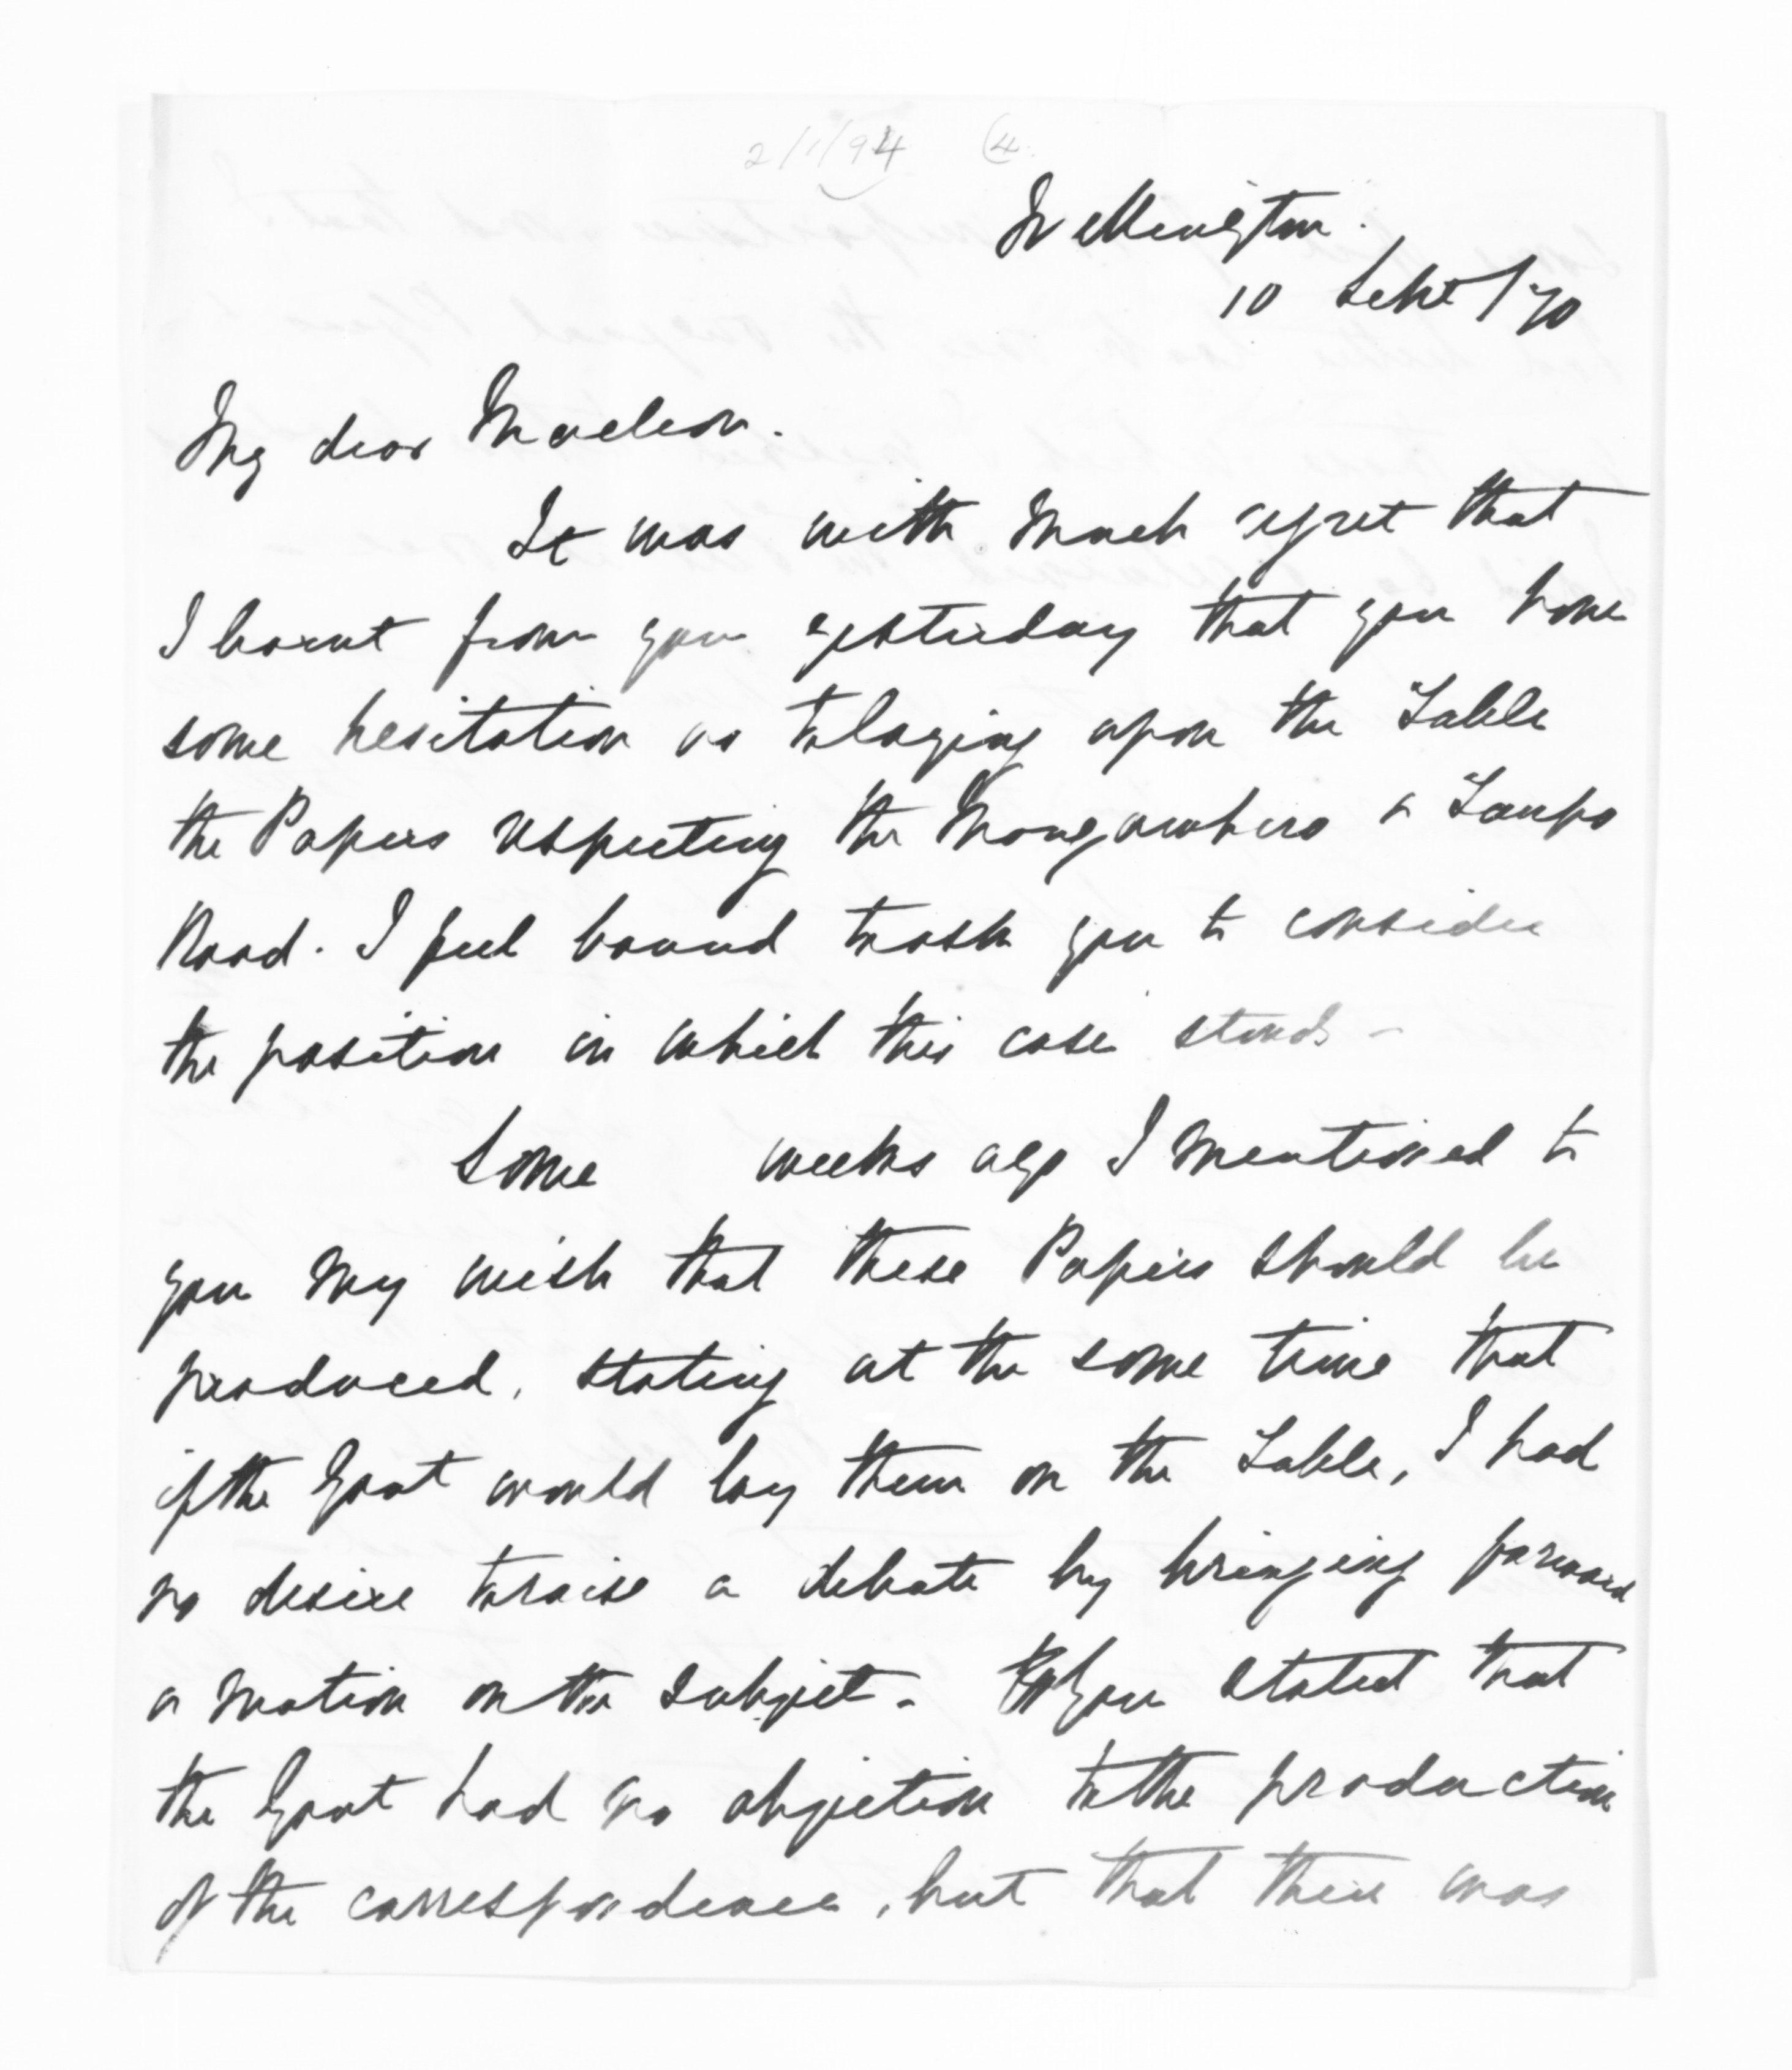 2/1/94 (4.
Wellington.
10 Sept/70
My dear Maclean.
It was with much regret that
I learnt from you yesterday that you have
some hesitation as to laying upon the Table
the Papers respecting the & Taupo
Road. I feel bound to ask you to consider
the position in which this case stands -
Some weeks ago I mentioned to
you my wish that these Papers should be
produced, stating at the same time that
if the Govt would lay them on the Table, I had
no desire to raise a debate by bringing forward
a motion on the subject. You stated that
the Govt had no objection to the production
of the correspondence, but that there was